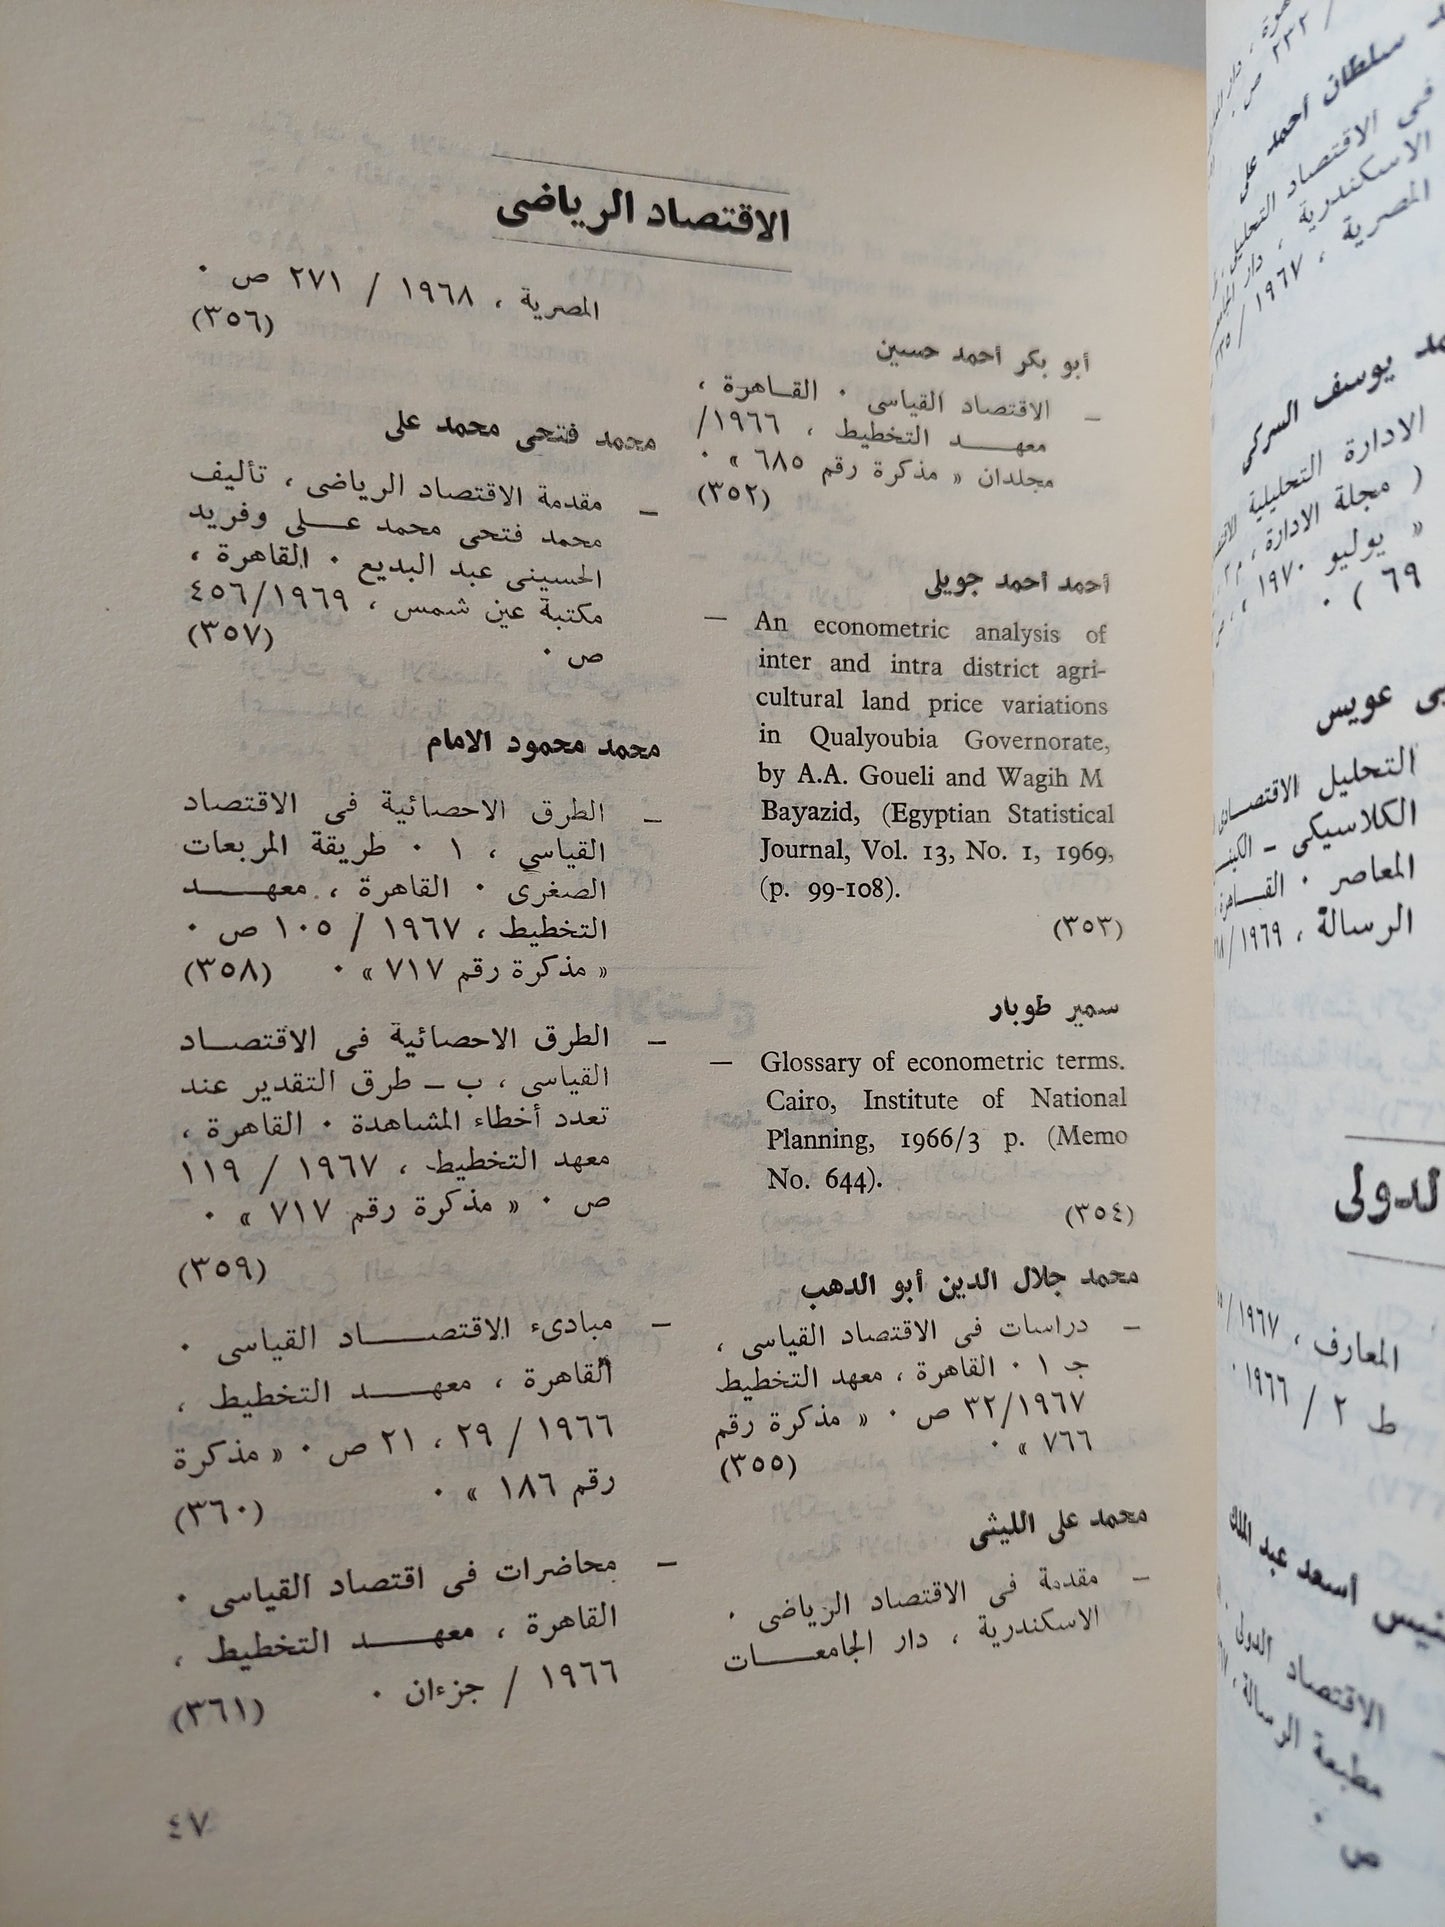 الاقتصاد الرياضى
أبو بكر أحمد حسين
— الاقتصاد القياسى ٠ القـاهرة ،
معهـــد التخطيط ، ١٩٦٦/
مجلدان « مذكرة رقم ٦٨٥ » ٠
(٣٥٢)
أحمد أحمد جويلى
— An econometric analysis of
inter and intra district agri-
cultural land price variations
in Qualyoubia Governorate,
by A.A. Goueli and Wagih M
Bayazid, (Egyptian Statistical
Journal, Vol. 13, No. 1, 1969,
(p. 99-108).
(٣٥٣)
سمير طوبار
— Glossary of econometric terms.
Cairo, Institute of National
Planning, 1966/3 p. (Memo
No. 644).
(٣٥٤)
محمد جلال الدين أبو الدهب
— دراسات فى الاقتصاد القياسى ،
جـ ١ ٠ القاهرة ، معهد التخطيط
٣٢/١٩٦٧ ص ٠ « مذكرة رقم
٧٦٦ » ٠ (٣٥٥)
محمد على الليثى
— مقدمة فى الاقتصاد الرياضى ٠
الاسكندرية ، دار الجامعـــات
المصرية ، ١٩٦٨ / ٢٧١ ص ٠
(٣٥٦)
محمد فتحى محمد على
— مقدمة الاقتصاد الرياضى ، تأليف
محمد فتحى محمد عــلى وفريد
الحسينى عبد البديع ٠ القاهرة ،
مكتبة عين شمس ، ٤٥٦/١٩٦٩
ص ٠ (٣٥٧)
محمد محمود الامام
— الطرق الاحصائية فى الاقتصاد
القياسي ، ١ ٠ طريقة المربعات
الصغرى ٠ القاهرة ، معهـــد
التخطيط ، ١٩٦٧ / ١٠٥ ص ٠
« مذكرة رقم ٧١٧ » ٠ (٣٥٨)
— الطرق الاحصائية فى الاقتصـاد
القياسى ، ب — طرق التقدير عند
تعدد أخطاء المشاهدة ٠ القاهرة ،
معهد التخطيط ، ١٩٦٧ / ١١٩
ص ٠ « مذكرة رقم ٧١٧ » ٠
(٣٥٩)
— مبادىء الاقتصـــاد القياسى ٠
القاهرة ، معهـــد التخطيط ،
١٩٦٦ / ٢٩ ، ٢١ ص ٠ « مذكرة
رقم ١٨٦ » ٠ (٣٦٠)
— محاضرات فى اقتصاد القياسى ٠
القاهرة ، معهـــد التخطيط ،
١٩٦٦ / جزءان ٠ (٣٦١)
٤٧
سلطان أحمد على
فى الاقتصاد التحليلى
الاسكندرية ، دار
المصرية ، ١٩٦٧ /
يوسف السركى
الادارة التحليلية
( مجلة الادارة ، م
« يوليو ١٩٧٠ ،
٦٩ ) ٠
عويس
التحليل الاقتصـادى
الكلاسيكى —
المعاصر ٠ القـاهرة
الرسالة ، ١٩٦٩ /
الدولى
المعارف ، ١٩٦٧ /
ط ٢ / ١٩٦٦ ٠
أسعد عبد الملك
الاقتصاد الدولى
مطبعة الرسالة ،
ص ٠